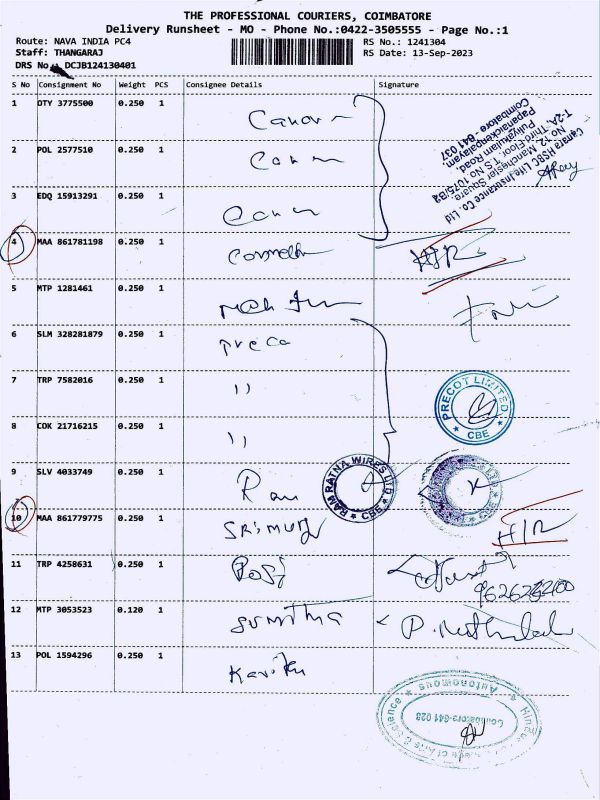 THE PROFESSIONAL COURIERS, COIMBATORE
Delivery Runsheet - MO - Phone No.:0422-3505555 - Page No.:1
Route: NAVA INDIA PC4
RS No.: 1241304
Staff: THANGARAJ
RS Date: 13-Sep-2023
DRS No.: DCJB124130401
S No Consignment No Weight PCS Consignee Details Signature
1 DTY 3775500 0.250 1
Canara HSBC Life Insurance Co. Ltd
No 12, Manchester Square
T-2A, Third Floor, T.S No 1075/B2
Puliyakulam Road,
Papanaickenpalayam,
Coimbatore - 641 037
2 POL 2577510 0.250 1
3 EDQ 15913291 0.250 1
4 MAA 861781198 0.250 1 H/R
5 MTP 1281461 0.250 1
6 SLM 328281879 0.250 1 preco
7 TRP 7582016 0.250 1 ıı
PRECOT LIMITED
* CBE *
8 COK 21716215 0.250 1 ıı
9 SLV 4033749 0.250 1 Ram
RAM RATNA WIRES LTD
* CBE *
10 MAA 861779775 0.250 1 H/R
11 TRP 4258631 0.250 1
12 MTP 3053523 0.120 1 Sumitha
13 POL 1594296 0.250 1
Autonomous
Coimbatore-641 028